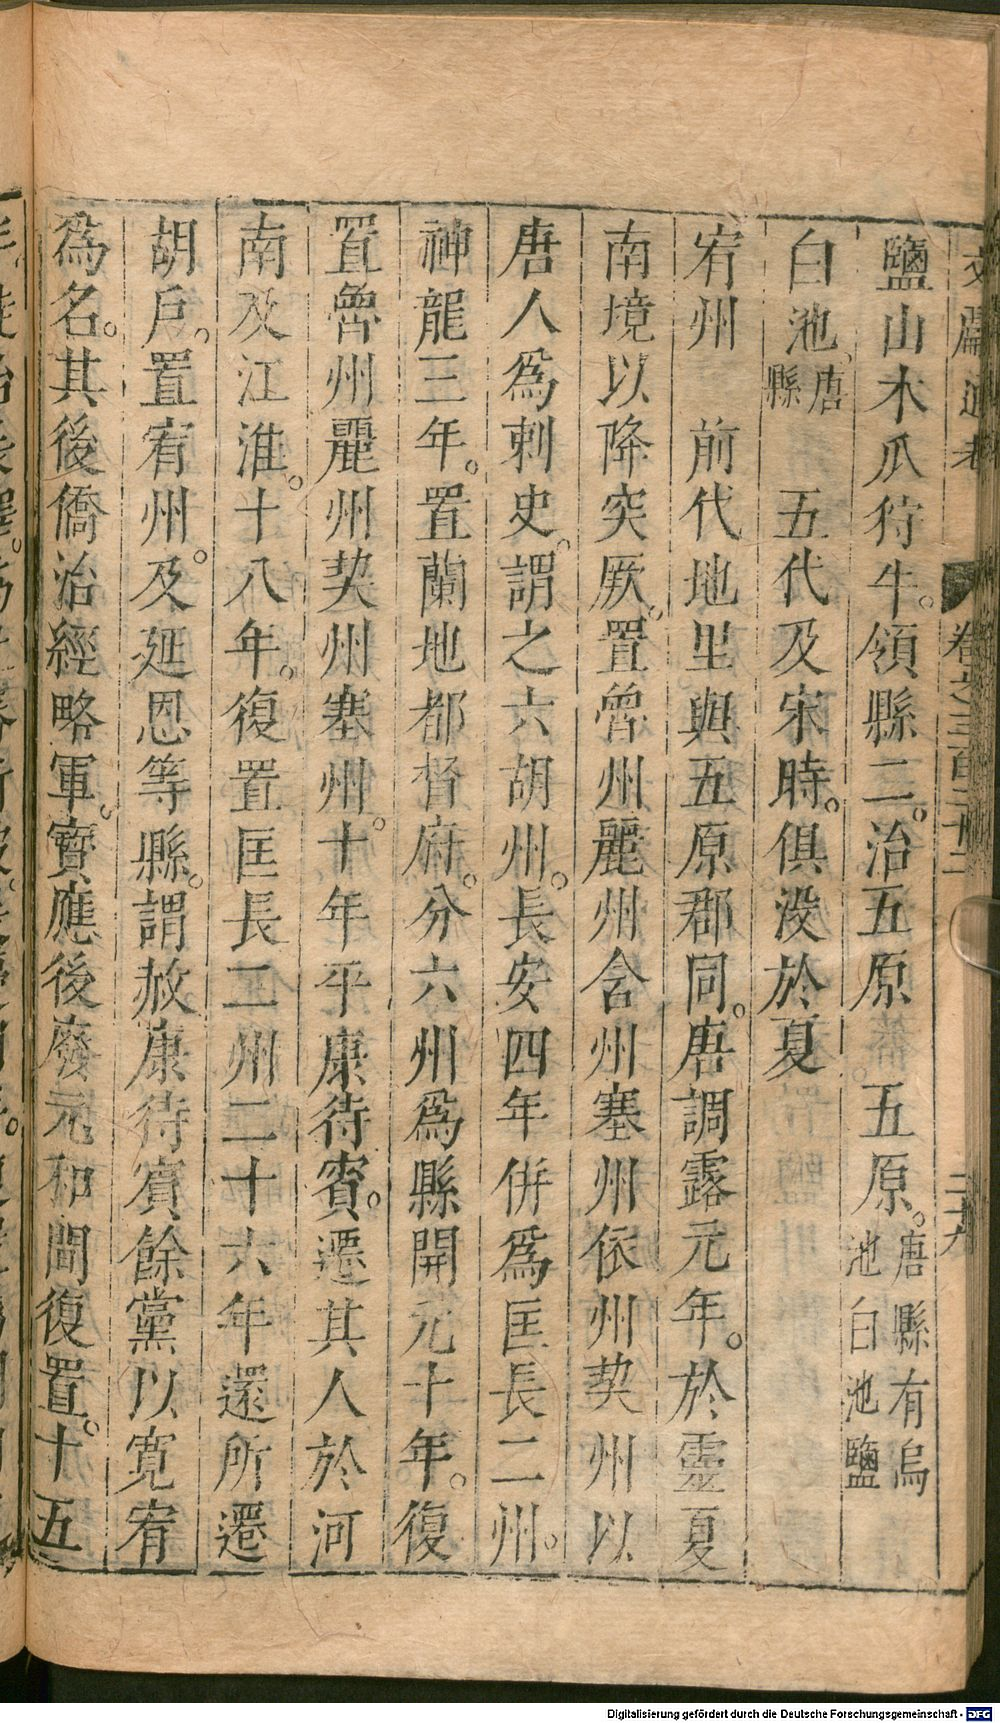 文獻通考　卷之三百二十二　二十九
鹽山木瓜㹀牛。領縣二。治五原　五原。唐縣有烏池白池鹽
白池。唐縣　五代及宋時。俱沒於夏
宥州　前代地里與五原郡同。唐調露元年。於靈夏
南境以降突厥。置魯州麗州含州塞州依州契州以
唐人為刺史。謂之六胡州。長安四年併為匡長二州。
神龍三年。置蘭地都督府。分六州為縣開元十年。復
置魯州麗州契州塞州。十年平康待賓。遷其人於河
南及江淮。十八年。復置匡長二州二十六年還所遷
胡戶。置宥州。及延恩等縣。謂赦康待賓餘黨以寬宥
為名。其後僑治經略軍。寶應後廢元和間復置。十五
Digitalisierung gefördert durch die Deutsche Forschungsgemeinschaft - DFG